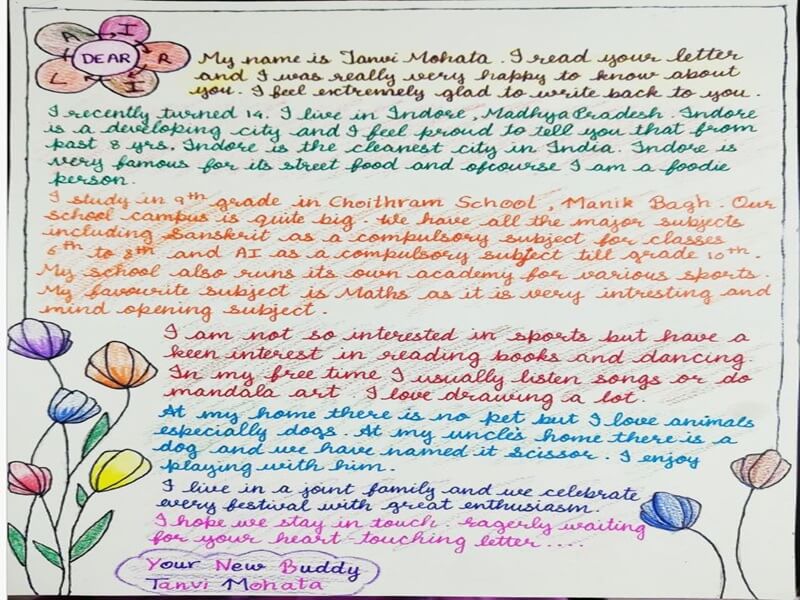 DEAR
A I R I L
My name is Tanvi Mohata. I read your letter
and I was really very happy to know about
you. I feel extremely glad to write back to you.
I recently turned 14. I live in Indore, Madhya Pradesh. Indore
is a developing city and I feel proud to tell you that from
past 8 yrs. Indore is the cleanest city in India. Indore is
very famous for its street food and ofcourse I am a foodie
person.
I study in 9th grade in Choithram School, Manik Bagh. Our
school campus is quite big. We have all the major subjects
including Sanskrit as a compulsory subject for classes
6th to 8th and AI as a compulsory subject till grade 10th.
My school also runs its own academy for various sports.
My favourite subject is Maths as it is very intresting and
mind opening subject.
I am not so interested in sports but have a
keen interest in reading books and dancing
In my free time I usually listen songs or do
mandala art. I love drawing a lot.
At my home there is no pet but I love animals
especially dogs. At my uncle's home there is a
dog and we have named it scissor. I enjoy
playing with him.
I live in a joint family and we celebrate
every festival with great enthusiasm.
I hope we stay in touch. eagerly waiting
for your heart-touching letter....
Your New Buddy
Tanvi Mohata